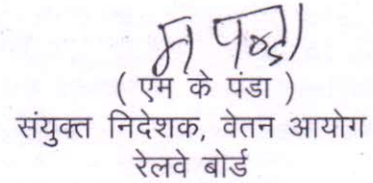 ( एम के पंडा )
संयुक्त निदेशक, वेतन आयोग
रेलवे बोर्ड